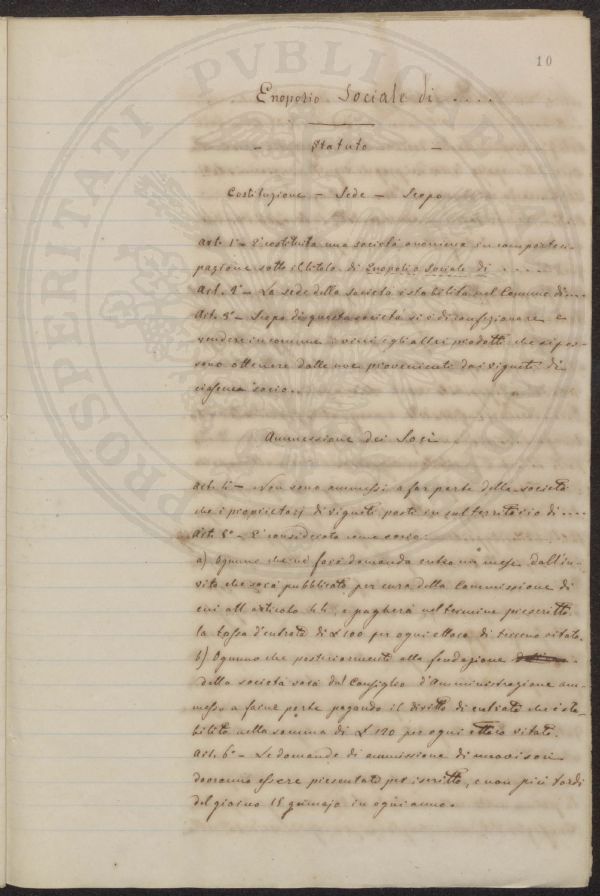 PROSPERITATI PVBLICAE
10
Enopolio Sociale di ....
Statuto
Costituzione – Sede – Scopo
Art. 1° – È costituita una società anonima in compartecipazione
sotto il titolo di Enopolio Sociale di ....
Art. 2° – La sede della società è stabilita nel Comune di ...
Art. 3° – Scopo di questa società si è di confezionare e
vendere in comune i vini e gli altri prodotti che si pos-
sono ottenere dalle uve provenienti dai vigneti di
ciascun socio.
Ammessione dei Soci
Art. 4° – Non sono ammessi a far parte della società
che i proprietarj di vigneti posti in sul territorio di ....
Art. 5° – È considerato come socio:
a) Ognuno che ne facci domanda entro un mese dall'in-
vito che sarà pubblicato per cura della Commissione di
cui all'articolo 44, e pagherà nel termine prescritto
la tassa d'entrata di £ 100 per ogni ettaro di terreno vitato.
b) Ognuno che posteriormente alla fondazione
della società sarà dal Consiglio d'Amministrazione am-
messo a farne parte pagando il diritto di entrata che è sta-
bilito nella somma di £ 120 per ogni ettaro vitato.
Art. 6° – Le domande di ammissione di nuovi soci
dovranno essere presentate per iscritto, e non più tardi
del giorno 15 gennajo in ogni anno.